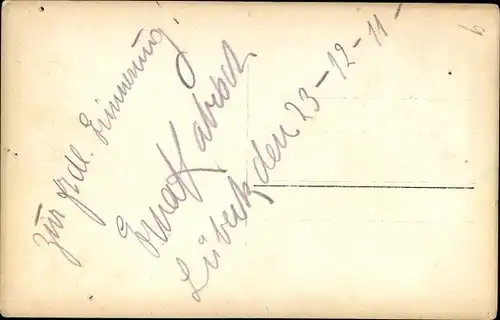 Zur frdl. Erinnerung
Erna
Lübeck den 23-12-11-
6